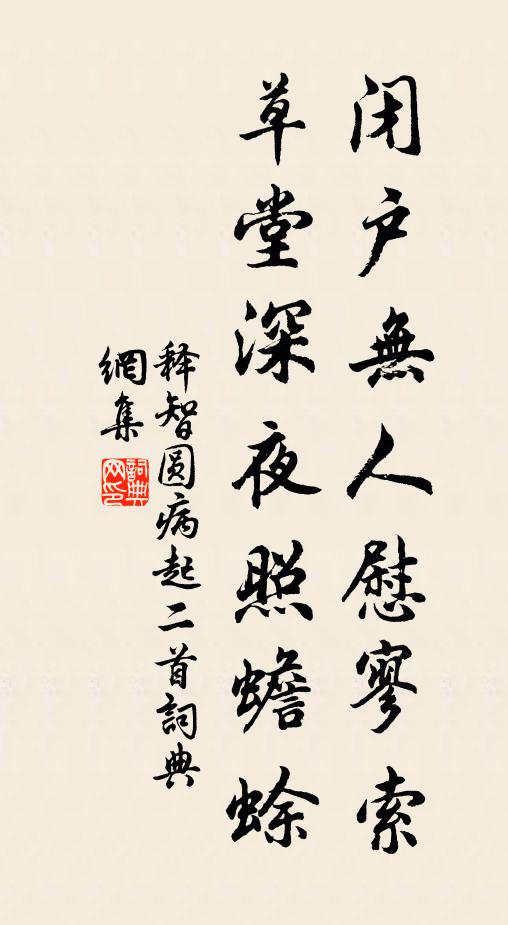 闭户無人慰寥索
草堂深夜照蟾蜍
释智圆病起二首詞典
網集
詞典
网印